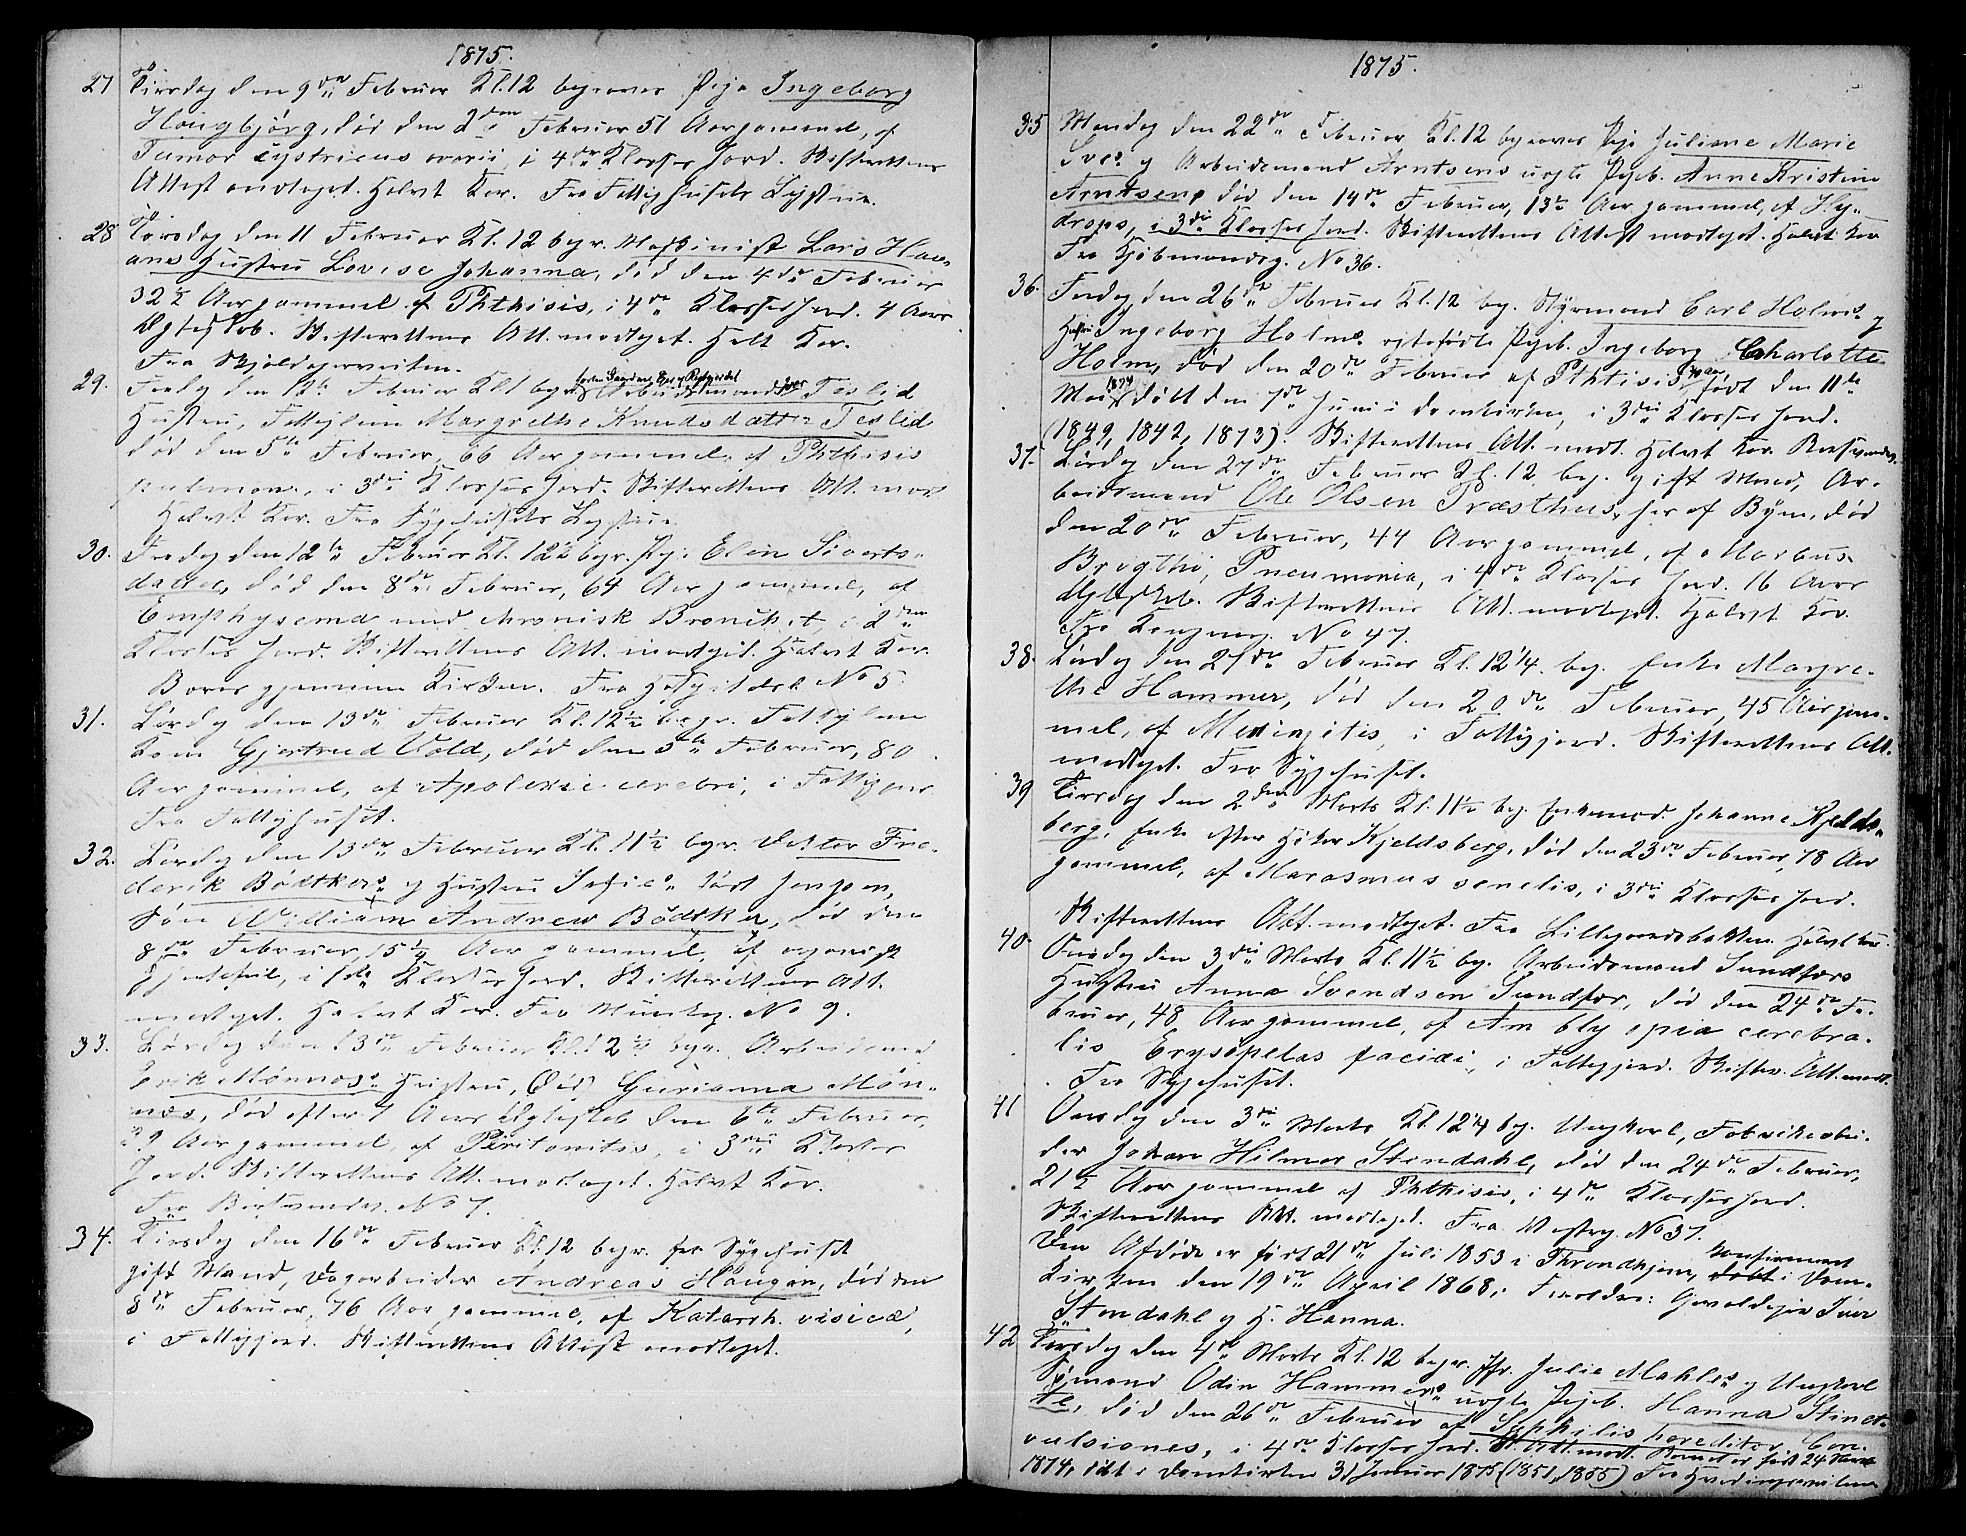 1875.
27 Tirsdag den 9de Februar Kl. 12 begraves Pige Ingeborg
Haugbjørg, død den 2den Februar 51 Aar gammel, af
Tumor cystricus ovarii, i 4de Klasses Jord. Skifterettens
Attest modtaget. Halvt Kor. Fra Fattighusets Ligstue.
28 Torsdag den 11 Februar Kl. 12 begr. Maskinist Lars Han-
ans Hustru Lovise Johanna, død den 4de Februar
32½ Aar gammel af Phthisis, i 4de Klasses Jord. 4 Aars
Ægteskab. Skifterettens Att. modtaget. Helt Kor.
Fra Skjoldagerveiten.
29. Fredag den 12te Februar Kl. 1 begr. Arbeidsmand Teslid
Hustru, Fattiglem Margrethe Knudsdatter Teslid
død den 5te Februar, 66 Aar gammel, af Phthisis
pulmon., i 3die Klasses Jord. Skifterettens Att. mod.
Halvt Kor. Fra Sygehusets Ligstue.
30. Fredag den 12te Februar Kl. 12½ begr. Pige Elen Siverts-
datter, død den 8de Februar, 64 Aar gammel, af
Emphysema med chronisk Bronchit, i 2den
Klasses Jord. Skifterettens Att. modtaget. Halvt Kor.
Bæres gjennem Kirken. Fra No 5.
31. Lørdag den 13de Februar Kl. 12½ begr. Fattiglem
Gjertrud Vold, død den 5te Februar, 80
Aar gammel, af Apolexie cerebri, i Fattigjord
Fra Fattighuset.
32. Lørdag den 13de Februar Kl. 11½ begr. Doktor Fre-
derik Bødtkers og Hustru født Jenssen,
Søn William Andrew Bødtker, død den
8de Februar, 5½ Aar gammel, af organisk
Hjertefeil, i 1ste Klasses Jord. Skifterettens Att.
modtaget. Halvt Kor. Fra Munkeg. No 9.
33. Lørdag den 13de Februar Kl. 12½ begr. Arbeidsmd
Erik Mønnæs's Hustru, Gurianna Møn-
næs, død efter 7 Aars Ægteskab den 6te Februar,
39 Aar gammel, af Peritonitis, i 3die Klasses
Jord. Skifterettens Att. modtaget. Halvt Kor.
Fra No 7.
34. Tirsdag den 16de Februar Kl. 12 begr. fra Sygehuset
gift Mand, Dagarbeider Andreas Haugan, død den
8de Februar, 76 Aar gammel, af Katarrh. visicæ,
i Fattigjord. Skifterettens Attest modtaget.
1875.
35 Mandag den 22de Februar Kl. 12 begraves Pige Juliane Marie
og Arbeidsmand Arntsens uægte Pigeb. Anne Kristine
Arntsen, død den 14de Februar, 13½ Aar gammel, af Hy-
drops, i 3die Klasses Jord. Skifterettens Attest modtaget. Halvt Kor
Fra Kjøbmandsg. No 36.
36. Fredag den 26de Februar Kl. 12 beg. Styrmand Carl Holms og
Hustru Ingeborg Holms ægtefødte Pigeb. Ingeborg Charlotte
Holm, død den 20de Februar af Phthisis, født den 11te
Mai 1874 døbt den 7de Juni i Domkirken, i 3die Klasses Jord.
(1849, 1842, 1873). Skifterettens Att. modt. Halvt Kor.
37. Lørdag den 27de Februar Kl. 12 beg. gift Mand, Ar-
beidsmand Ole Olsen Præsthus, her af Byen, død
den 20de Februar, 44 Aar gammel, af Morbus
Brigthii, Pneumonia, i 4de Klasses Jord. 16 Aars
Ægteskab. Skifterettens Att. modtaget. Halvt Kor.
Fra Kongensg. No 47.
38. Lørdag den 27de Februar Kl. 12¼ beg. Enke Margre-
the Hammer, død den 20de Februar, 45 Aar gam-
mel, af Meningitis, i Fattigjord. Skifterettens Att.
modtaget. Fra Sygehuset.
39 Tirsdag den 2den Marts Kl. 11½ beg. Enkemad. Johanne Kjelds-
berg, Enke efter Høker Kjeldsberg, død den 23de Februar, 78 Aar
gammel, af Marasmus senelis, i 3die Klasses Jord.
Skifterettens Att. modtaget. Fra Lillegaardsbakken. Halvt Kor.
40. Onsdag den 3die Marts Kl. 11½ beg. Arbeidsmand Sundførs
Hustru Anna Svendsen Sundfør, død den 24de Fe-
bruar, 48 Aar gammel, af Amblyopia cerebra-
lis Erysipelas faciei, i Fattigjord. Skifter. Att. modt.
Fra Sygehuset.
41 Onsdag den 3die Marts Kl. 12¼ beg. Ungkarl, Fabrikarbei-
der Johan Hilmar Stendahl, død den 24de Februar,
21½ Aar gammel af Phthisis, i 4de Klasses Jord.
Skifterettens Att. modtaget. Fra Vestreg. No 37.
Den Afdøde er født 21de Juli 1853 i Throndhjem, konfirmeret døbt i Dom-
Kirken den 19de April 1868. Forældre: Iver
Stendahl og H. Hanna.
42 Torsdag den 4de Marts Kl. 12 begr. Pige Julie Mahles og Ungkarl
Sømand Odin Hammers uægte Pigeb. Hanna Stinet-
te, død den 26de Februar af Syphilis hereditar. Con-
vulsiones, i 4de Klasses Jord. Sk. Att. modt. Barnet er født 24
1874, døbt i Domkirken 31 Januar 1875 (1851, 1855) Fra